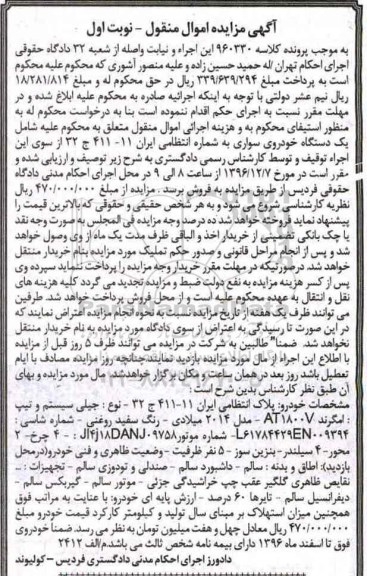 آگهی مزایده اموال منقول - نوبت اول
به موجب پرونده کلاسه ۹۶۰۳۳۰ این اجراء و نیابت واصله از شعبه ۳۲ دادگاه حقوقی
اجرای احکام تهران /له حمید حسین زاده و علیه منصور آشوری که محکوم علیه محکوم
است به پرداخت مبلغ ۳۳۹/۶۳۹/۲۹۴ ریال در حق محکوم له و مبلغ ۱۸/۲۸۱/۸۱۴
ریال نیم عشر دولتی با توجه به اینکه اجرائیه صادره به محکوم علیه ابلاغ شده و در
مهلت مقرر نسبت به اجرای حکم اقدام ننموده است بنا به درخواست محکوم له به
منظور استیفای محکوم به و هزینه اجرائی اموال منقول متعلق به محکوم علیه شامل
یک دستگاه خودروی سواری به شماره انتظامی ایران ۱۱- ۴۱۱ ج ۳۲ از سوی این
اجراء توقیف و توسط کارشناس رسمی دادگستری به شرح زیر توصیف و ارزیابی شده و
مقرر است در مورخ ۱۳۹۶/۱۲/۷ از ساعت ۸ الی ۹ در محل اجرای احکام مدنی دادگاه
حقوقی فردیس از طریق مزایده به فروش برسد. مزایده از مبلغ ۴۷۰/۰۰۰/۰۰۰ ریال
نظریه کارشناسی شروع می شود و به هر شخص حقیقی و حقوقی که بالاترین قیمت را
پیشنهاد نماید فروخته خواهد شد ده درصد وجه مزایده فی المجلس به صورت وجه نقد
یا چک بانکی تضمینی از خریدار اخذ و الباقی ظرف مدت یک ماه از وی وصول خواهد
شد و پس از انجام مراحل قانونی و صدور حکم تملیک مورد مزایده بنام خریدار منتقل
خواهد شد. درصورتیکه در مهلت مقرر خریدار وجه مزایده را پرداخت ننماید سپرده وی
پس از کسر هزینه مزایده به نفع دولت ضبط و مزایده تجدید می گردد کلیه هزینه های
نقل و انتقال به عهده محکوم علیه است و از محل فروش پرداخت خواهد شد. طرفین
می توانند ظرف یک هفته از تاریخ مزایده نسبت به نحوه انجام مزایده اعتراض نمایند که
در این صورت تا رسیدگی به اعتراض از سوی دادگاه مورد مزایده به نام خریدار منتقل
نخواهد شد. ضمنا" طالبین به شرکت در مزایده می توانند ظرف ۵ روز قبل از مزایده
با اطلاع این اجراء از مال مورد مزایده بازدید نمایند.چنانچه روز مزایده مصادف با ایام
تعطیل باشد روز بعد در همان ساعت و مکان برگزار خواهدشد. مال مورد مزایده و بهای
آن طبق نظر کارشناس بدین شرح است:
مشخصات خودرو: پلاک انتظامی ایران ۱۱-۴۱۱ ج ۳۲ - نوع: جیلی سیستم و تیپ
: امگرند AT۱۸۰۰۷ - مدل ۲۰۱۴ میلادی - رنگ سفید روغنی - شماره شاسی :
L۶۱۷۸۴۴۲۹EN۰۰۹۳۹۴- شماره موتور JI۴J۱۸DANJ۰۹۷۵۸ : - ۴ چرخ - ۲
محور-۴ سیلندر- بنزین سوز - ۵ نفر ظرفیت - وضعیت ظاهری و فنی خودرو(درمحل
بازدید): اطاق و بدنه : سالم - داشبورد سالم - صندلی و تودوزی سالم - تجهیزات : ..
نقایص ظاهری گلگیر عقب چپ خراشیدگی جزئی - موتور سالم - گیربکس سالم -
دیفرانسیل سالم - تایرها ۶۰ درصد - ارزش پایه ای خودرو: با عنایت به مراتب فوق
همچنین میزان استهلاک بر مبنای سال تولید و کیلومتر کارکرد قیمت خودرو مبلغ
۴۷۰/۰۰۰/۰۰۰ ریال معادل چهل و هفت میلیون تومان به نظر می رسد. ضمنا خودروی
فوق تا اسفند ماه ۱۳۹۶ دارای بیمه نامه شخص ثالث می باشد.م/الف ۲۴۱۲
دادورز اجرای احکام مدنی دادگستری فردیس - کولیوند